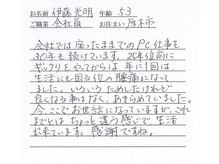 お名前 伊藤光明 年齢 53
ご職業 会社員 お住まい 厚木市
会社では座ったままでのPC仕事を
30年も続けています。25年位前に
ギックリをやってからは 年に1回は
生活にも困る位の腰痛になって
ました。いろいろためしたけれど
良くなる事はなく、あきらめていました。
今、ここでお世話になっていますが、これ
までとは ちょっと違う感じで 生活
出来ています。感謝ですね。